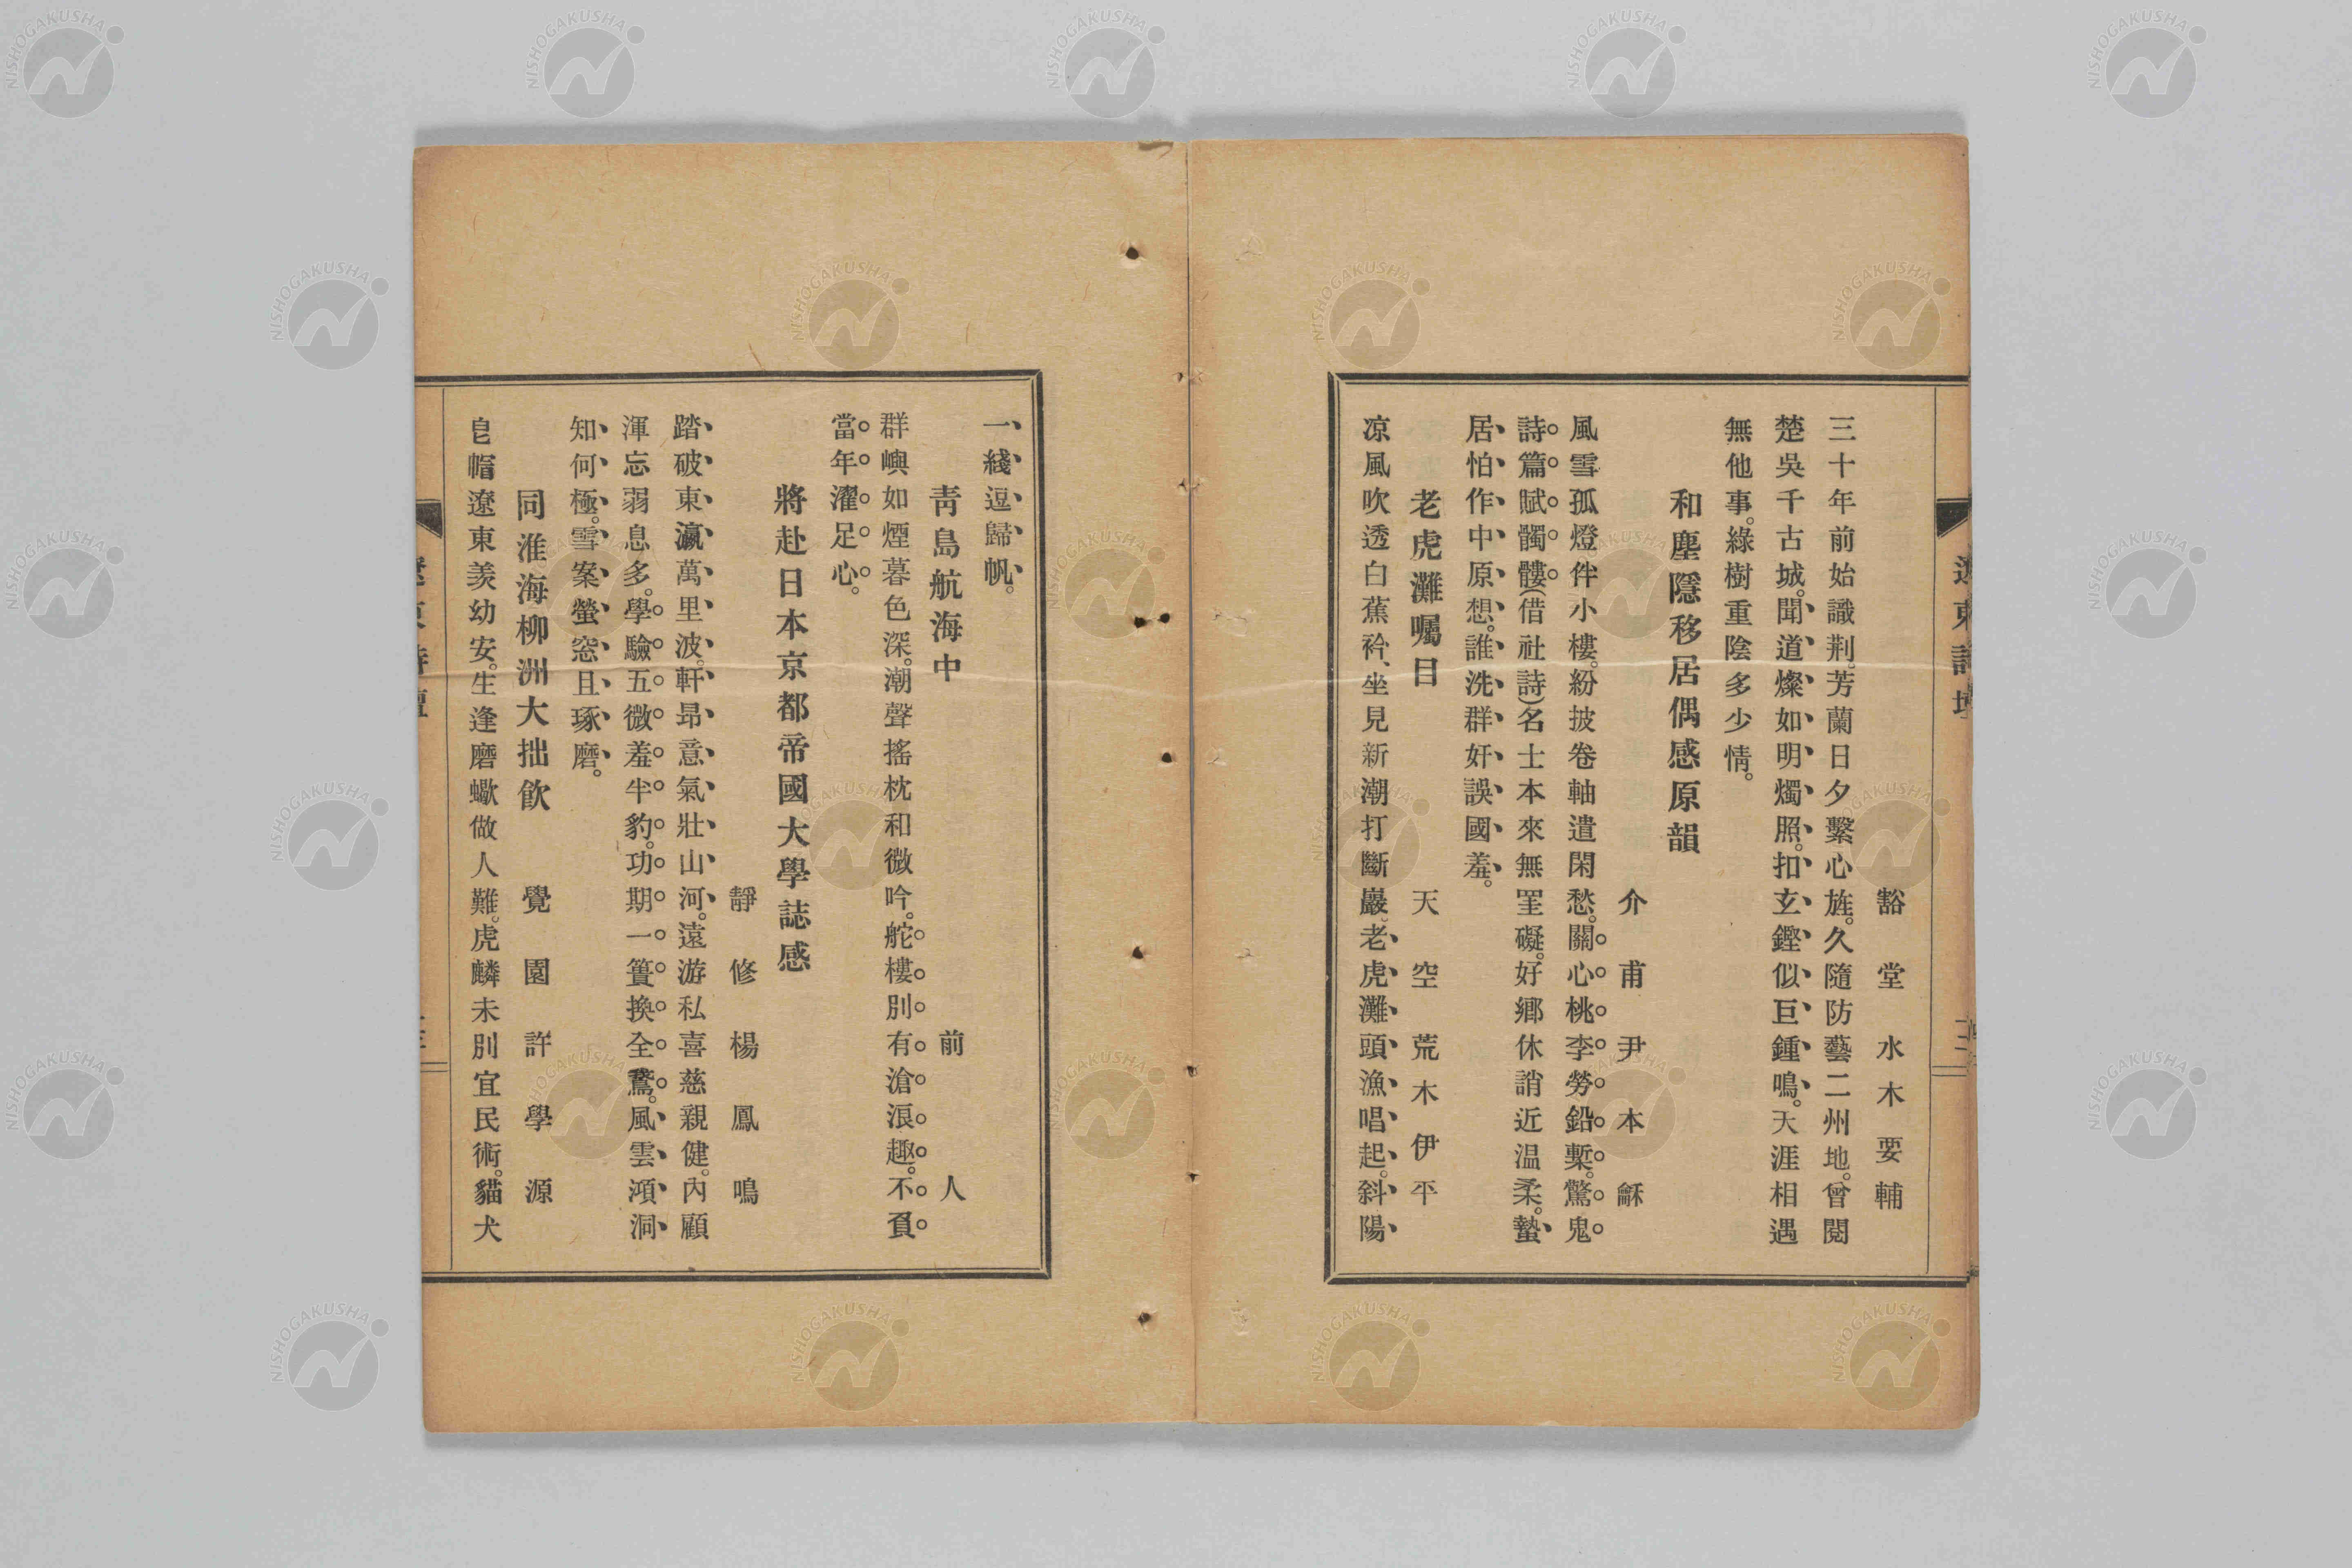 豁堂 水木要輔
三十年前始識荆。芳蘭日夕繫心旌。久隨防藝二州地。曾閱
楚吳千古城。聞道燦如明燭照。扣玄鏗似巨鍾鳴。天涯相遇
無他事。綠樹重陰多少情。
和塵隱移居偶感原韻
介甫 尹本龢
風雪孤燈伴小樓。紛披卷軸遣閑愁。關心桃李勞鉛槧。驚鬼
詩篇賦髑髏(借社詩)名士本來無罣礙。好鄉休誚近温柔。蟄
居怕作中原想。誰洗群奸誤國羞。
老虎灘囑目
天空 荒木伊平
凉風吹透白蕉衿、坐見新潮打斷巖。老虎灘頭漁唱起。斜陽
一綫逗歸帆。
靑島航海中
前人
群嶼如煙暮色深。潮聲搖枕和微吟。舵樓別有滄浪趣。不負
當年濯足心。
將赴日本京都帝國大學誌感
靜修 楊鳳鳴
踏破東瀛萬里波。軒昂意氣壯山河。遠游私喜慈親健。內顧
渾忘弱息多。學驗五微羞半豹。功期一簣換全鵞。風雲澒洞
知何極。雪案螢窓且琢磨。
同淮海柳洲大拙飮
覺園 許學源
皂帽遼東羨幼安。生逢磨蠍做人難。虎麟未別宜民術。貓犬
NISHOGAKUSHA